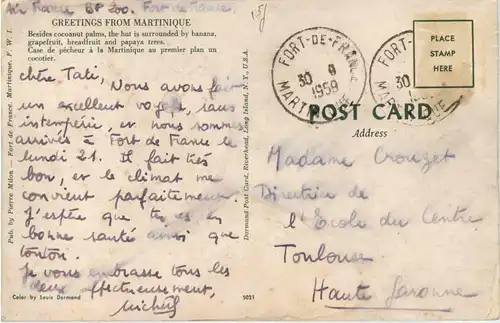 Air France BP 200. Fort de France.
GREETINGS FROM MARTINIQUE
Besides cocoanut palms, the hut is surrounded by banana,
grapefruit, breadfruit and papaya trees.
Case de pécheur à la Martinique au premier plan un
cocotier.
Chère Tati, Nous avons fait
un excellent voyage, sans
intempérie, et nous sommes
arrivés à Fort de France le
lundi 21. Il fait très
bon, et le climat me
convient parfaitement.
J'espère que tu es en
bonne santé ainsi que
tonton.
Je vous embrasse tous les
deux affectueusement,
Color by Louis Dormand
5021
Pub. by Pierre Milon - Fort de France, Martinique, F. W. I.
Dormand Post Card, Riverhead, Long Island, N. Y., U.S.A.
FORT-DE-FRANCE
30
1959
MARTINIQUE
FORT-DE-FRANCE
30
MARTINIQUE
PLACE
STAMP
HERE
POST CARD
Address
Madame Crouzet
Directrice de
l'Ecole du Centre
Toulouse
Haute Garonne